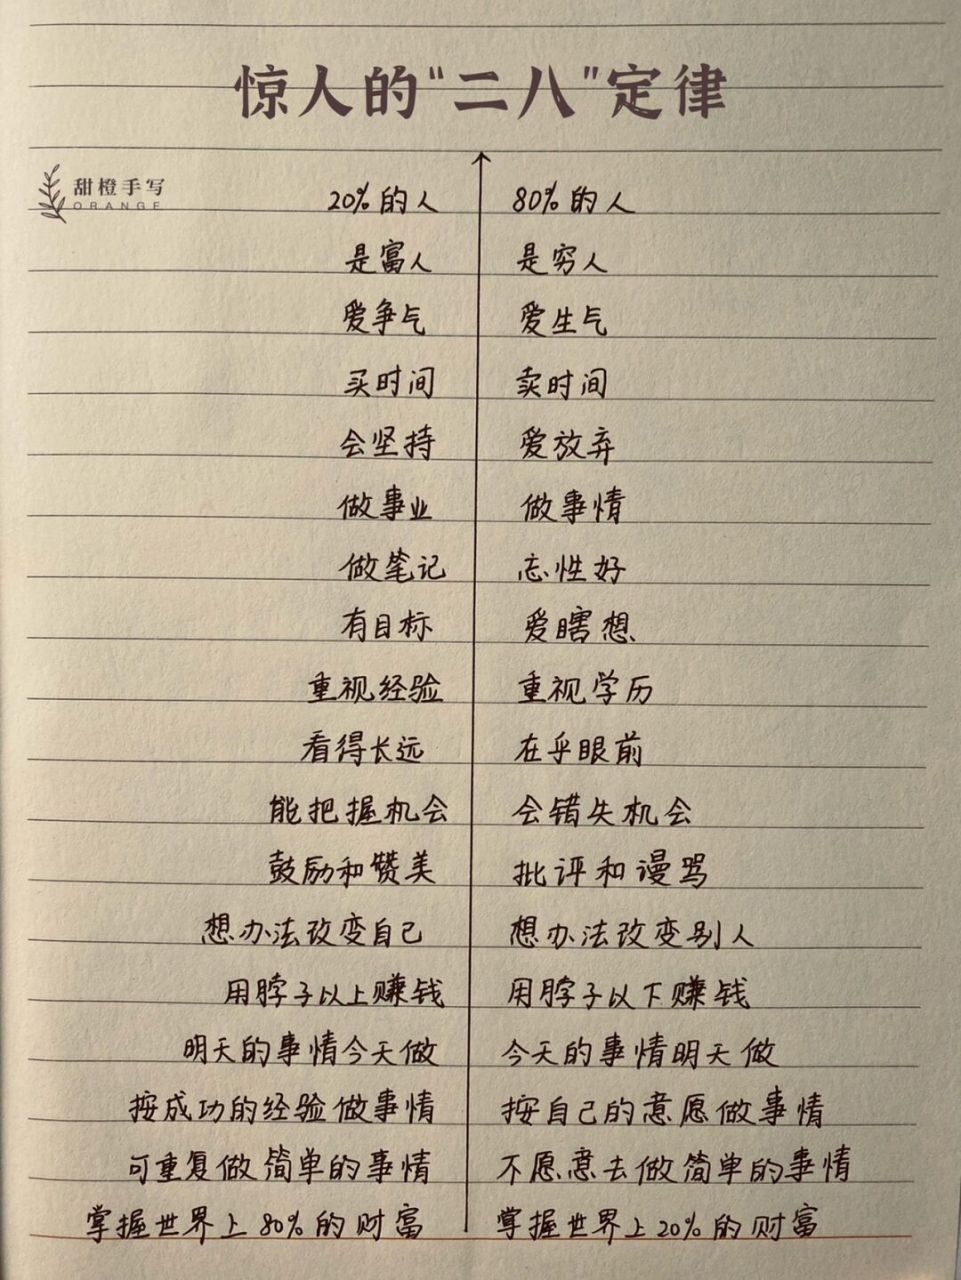 惊人的“二八”定律
甜橙手写
ORANGE
20%的人 80%的人
是富人 是穷人
爱争气 爱生气
买时间 卖时间
会坚持 爱放弃
做事业 做事情
做笔记 忘性好
有目标 爱瞎想
重视经验 重视学历
看得长远 在乎眼前
能把握机会 会错失机会
鼓励和赞美 批评和谩骂
想办法改变自己 想办法改变别人
用脖子以上赚钱 用脖子以下赚钱
明天的事情今天做 今天的事情明天做
按成功的经验做事情 按自己的意愿做事情
可重复做简单的事情 不愿意去做简单的事情
掌握世界上80%的财富 掌握世界上20%的财富